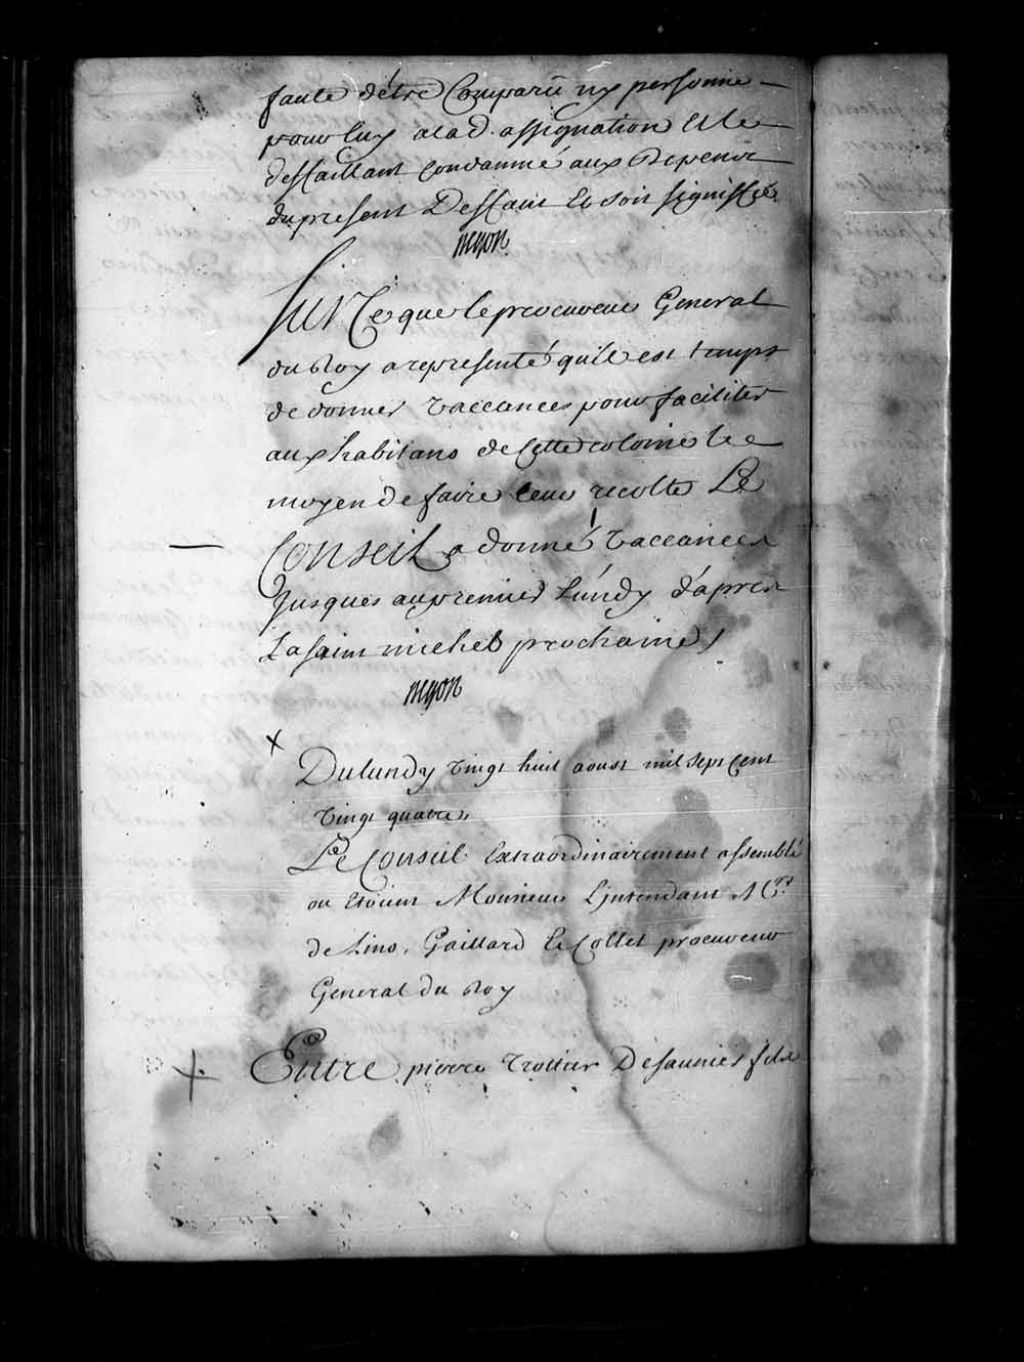 faute d'étre Comparu ny personne
pour luy alad. assignation Et le
deffaillant Condamné aux Depens
du present Deffaut Et soit signiffié
Begon
Sur Ce que le procureur General
du Roy a representé qu'il est temps
de donner vaccances pour faciliter
aux habitans de Cette Colonie Le
moyen de faire leur recolte Le
Conseil a donné vaccances
Jusques au premier Lundy d'apres
La saint michel prochaine
Begon
Du lundy vingt huit aoust mil sept Cent
vingt quatre
Le Conseil Extraordinairement assemblé
ou Etoient Monsieur L'jntendant Mrs
de Lino, Gaillard Le Collet procureur
General du Roy
Entre pierre Trottier Desauniers fils